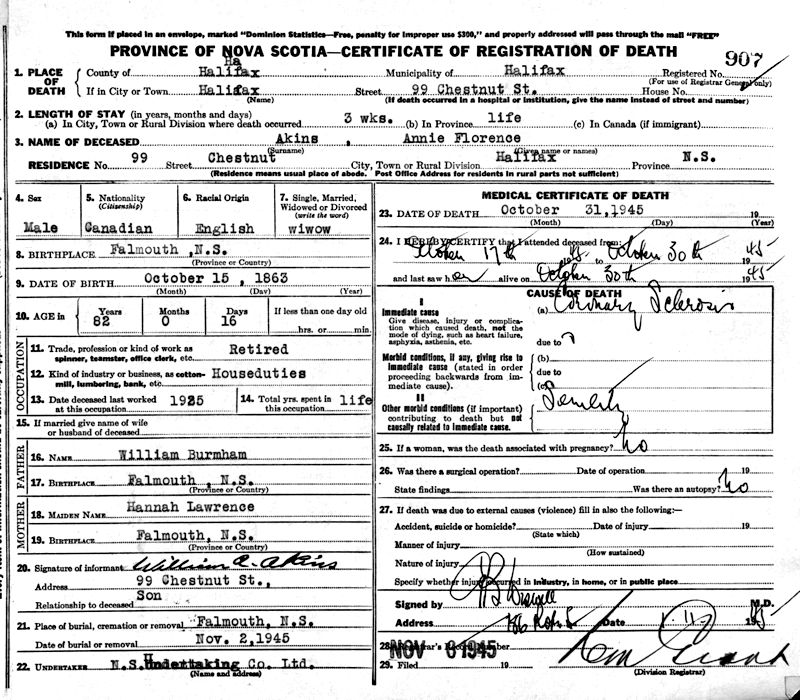 This form if placed in an envelope, marked "Dominion Statistics—Free, penalty for improper use $300," and properly addressed will pass through the mail "FREE"
PROVINCE OF NOVA SCOTIA—CERTIFICATE OF REGISTRATION OF DEATH
907
1. PLACE OF DEATH County of Halifax Municipality of Halifax Registered No.
(For use of Registrar General only)
If in City or Town Halifax Street 99 Chestnut St. House No.
(Name) (If death occurred in a hospital or institution, give the name instead of street and number)
2. LENGTH OF STAY (in years, months and days)
(a) In City, Town or Rural Division where death occurred 3 wks. (b) In Province life (c) In Canada (if immigrant)
3. NAME OF DECEASED Akins , Annie Florence
(Surname) (Given name or names)
RESIDENCE No 99 Street Chestnut City, Town or Rural Division Halifax Province N.S.
(Residence means usual place of abode. Post Office Address for residents in rural parts not sufficient)
4. Sex
Male
5. Nationality
(Citizenship)
Canadian
6. Racial Origin
English
7. Single, Married, Widowed or Divorced
(write the word)
wiwow
8. BIRTHPLACE Falmouth ,N.S.
(Province or Country)
9. DATE OF BIRTH October 15 , 1863
(Month) (Day) (Year)
10. AGE in Years Months Days If less than one day old
82 0 16 hrs. or min.
OCCUPATION
11. Trade, profession or kind of work as spinner, teamster, office clerk, etc. Retired
12. Kind of industry or business, as cotton-mill, lumbering, bank, etc. Houseduties
13. Date deceased last worked at this occupation 1925
14. Total yrs. spent in this occupation life
15. If married give name of wife or husband of deceased
FATHER
16. NAME William Burmham
17. BIRTHPLACE Falmouth, N.S.
(Province or Country)
MOTHER
18. MAIDEN NAME Hannah Lawrence
19. BIRTHPLACE Falmouth, N.S.
(Province or Country)
20. Signature of informant William C. Akins
Address 99 Chestnut St.,
Relationship to deceased Son
21. Place of burial, cremation or removal Falmouth, N.S.
Date of burial or removal Nov. 2,1945
22. UNDERTAKER N.S. Undertaking Co. Ltd.
(Name and address)
MEDICAL CERTIFICATE OF DEATH
23. DATE OF DEATH October 31,1945 19
(Month) (Day) (Year)
24. I HEREBY CERTIFY that I attended deceased from
October 17th to October 30th 1945
and last saw her alive on October 30th 1945
CAUSE OF DEATH
I
Immediate cause
Give disease, injury or complication which caused death, not the mode of dying, such as heart failure, asphyxia, asthenia, etc.
(a) Coronary Sclerosis
due to
Morbid conditions, if any, giving rise to immediate cause (stated in order proceeding backwards from immediate cause).
(b)
due to
(c)
II
Other morbid conditions (if important) contributing to death but not causally related to immediate cause.
Senility
25. If a woman, was the death associated with pregnancy? no
26. Was there a surgical operation? Date of operation 19
State findings Was there an autopsy? no
27. If death was due to external causes (violence) fill in also the following:—
Accident, suicide or homicide? Date of injury 19
(State which)
Manner of injury
(How sustained)
Nature of injury
Specify whether injury occurred in industry, in home, or in public place
Signed by M.D.
Address Date 1945
28.
NOV 6 1945
29. Filed 19
(Division Registrar)